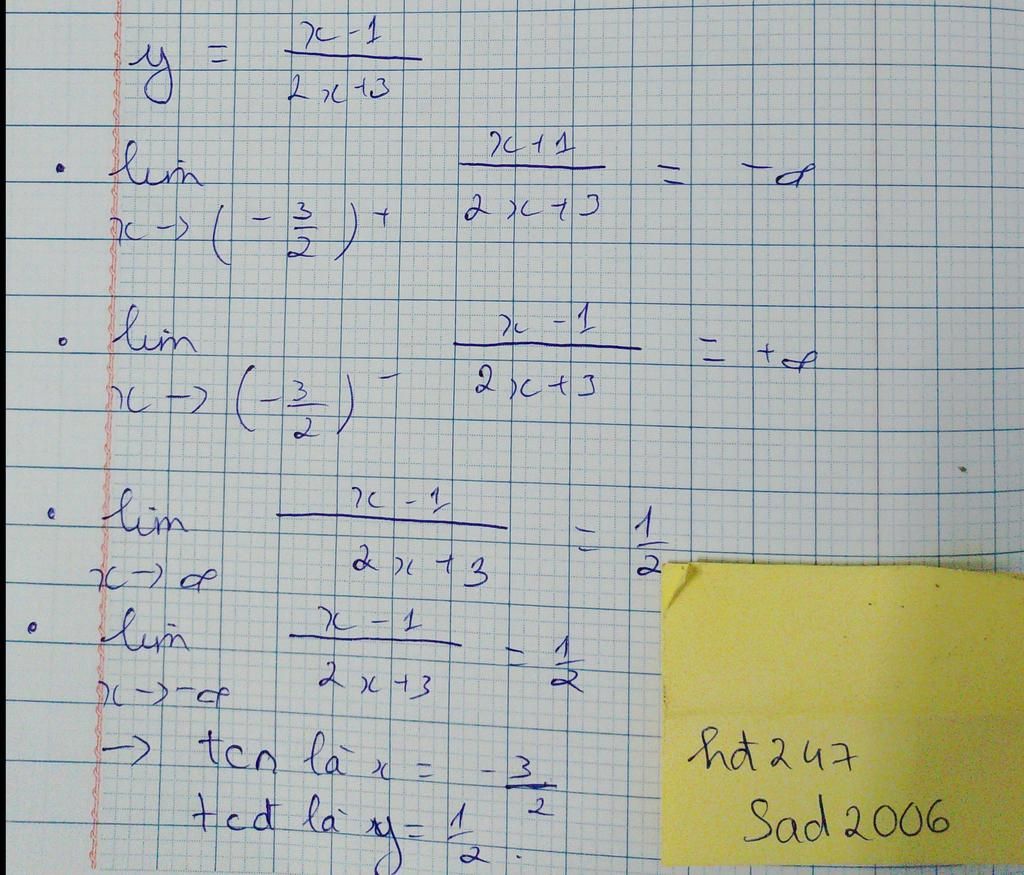 y = (x-1)/(2x+3)
• lim x→(-3/2)⁺ (x+1)/(2x+3) = -∞
• lim x→(-3/2)⁻ (x-1)/(2x+3) = +∞
• lim x→∞ (x-1)/(2x+3) = 1/2
• lim x→-∞ (x-1)/(2x+3) = 1/2
→ tcn là x = -3/2
tcđ là y = 1/2.
hdt247
Sad2006